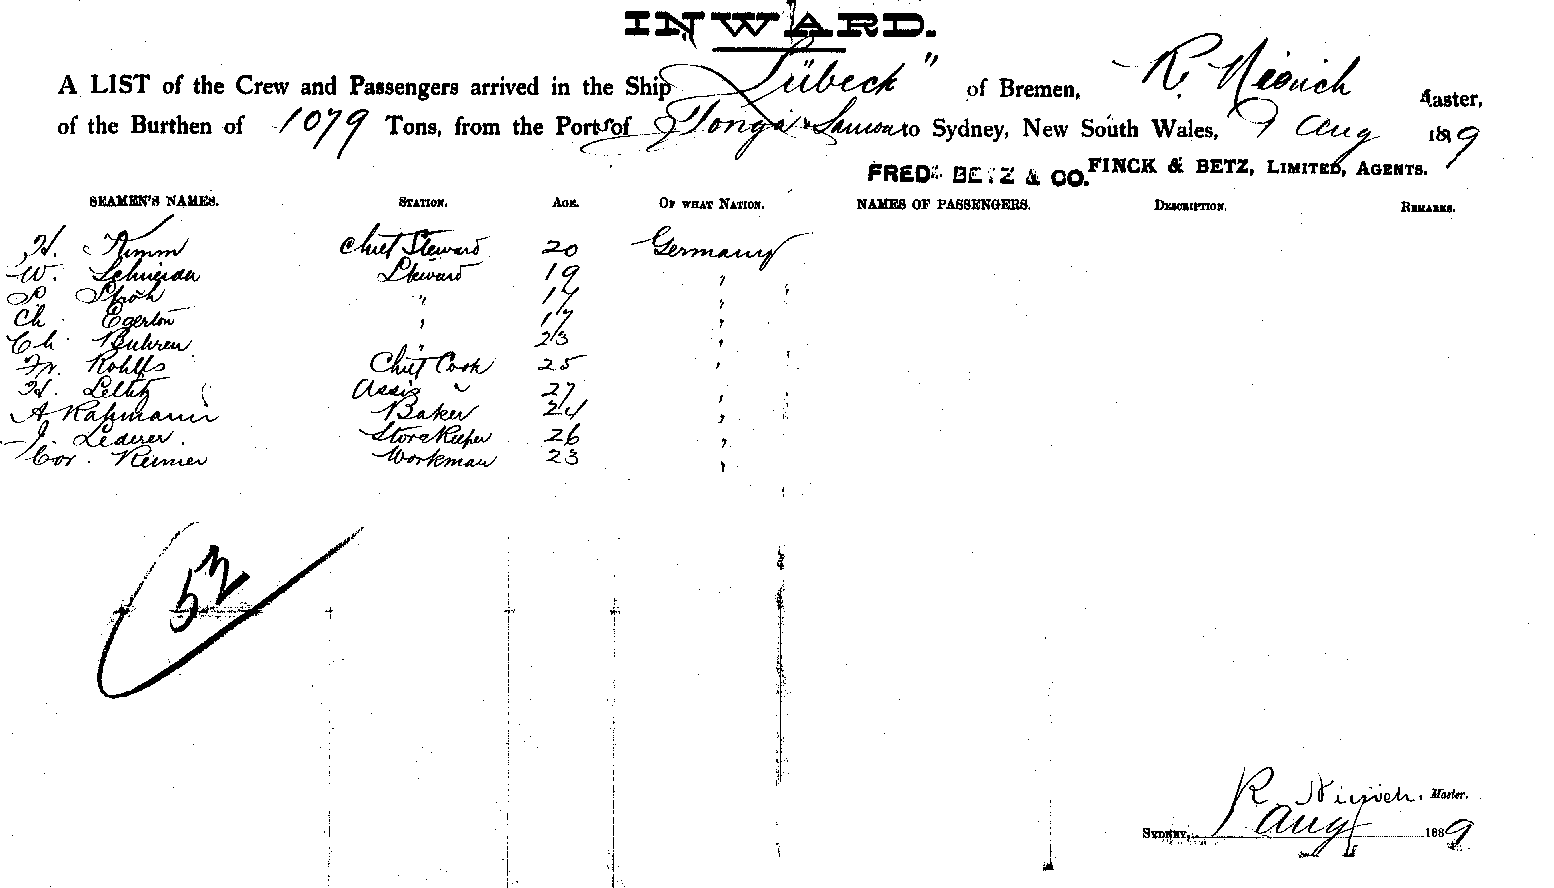 INWARD.
A LIST of the Crew and Passengers arrived in the Ship Lübeck" of Bremen, R. Master,
of the Burthen of 1079 Tons, from the Ports of Tonga & to Sydney, New South Wales, 9 Aug 1889
FREDK BETZ & CO. FINCK & BETZ, LIMITED, AGENTS.
SEAMEN'S NAMES. STATION. AGE. OF WHAT NATION. NAMES OF PASSENGERS. DESCRIPTION. REMARKS.
H. Chief Steward 20 Germany
W. Steward 19 "
" "
Ch. Egerton " 17 "
Ch. Buhren 23 "
Fr. Rohlfs Chief Cook 25 "
H. Assis " 27 "
A Baker 24 "
J. Lederer. Storekeeper 26 "
Cor. Reimer Workman 23 "
52
R Master.
SYDNEY, 9 Aug 1889